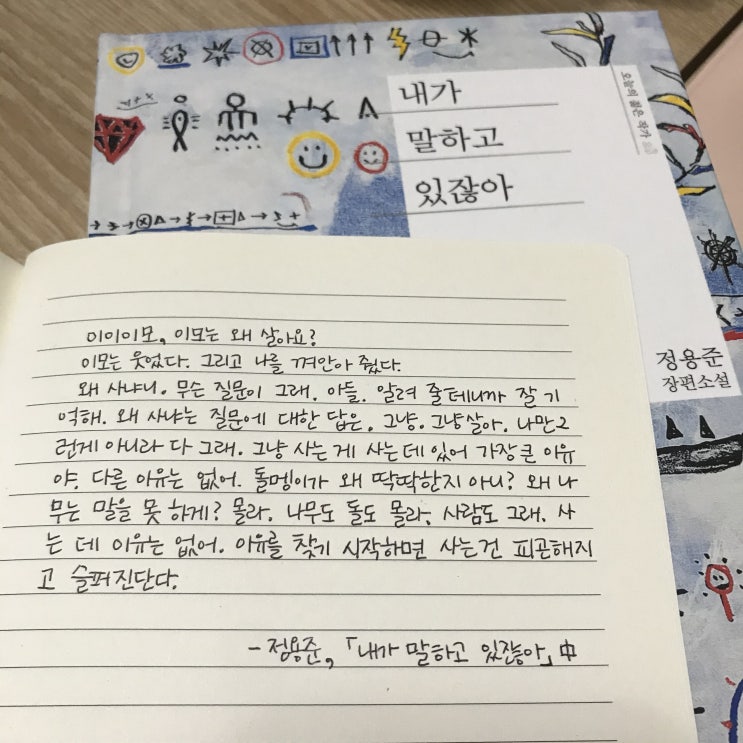 내가
말하고
있잖아
오늘의 젊은 작가
정용준
장편소설
이이이모, 이모는 왜 살아요?
이모는 웃었다. 그리고 나를 껴안아 줬다.
왜 사냐니. 무슨 질문이 그래. 아들. 알려 줄테니까 잘 기
억해. 왜 사냐는 질문에 대한 답은, 그냥. 그냥살아. 나만그
런게 아니라 다 그래. 그냥 사는 게 사는데 있어 가장 큰 이유
야. 다른 이유는 없어. 돌멩이가 왜 딱딱한지 아니? 왜 나
무는 말을 못 하게? 몰라. 나무도 돌도 몰라. 사람도 그래. 사
는 데 이유는 없어. 이유를 찾기 시작하면 사는건 피곤해지
고 슬퍼진단다.
- 정용준, 「내가 말하고 있잖아」 中